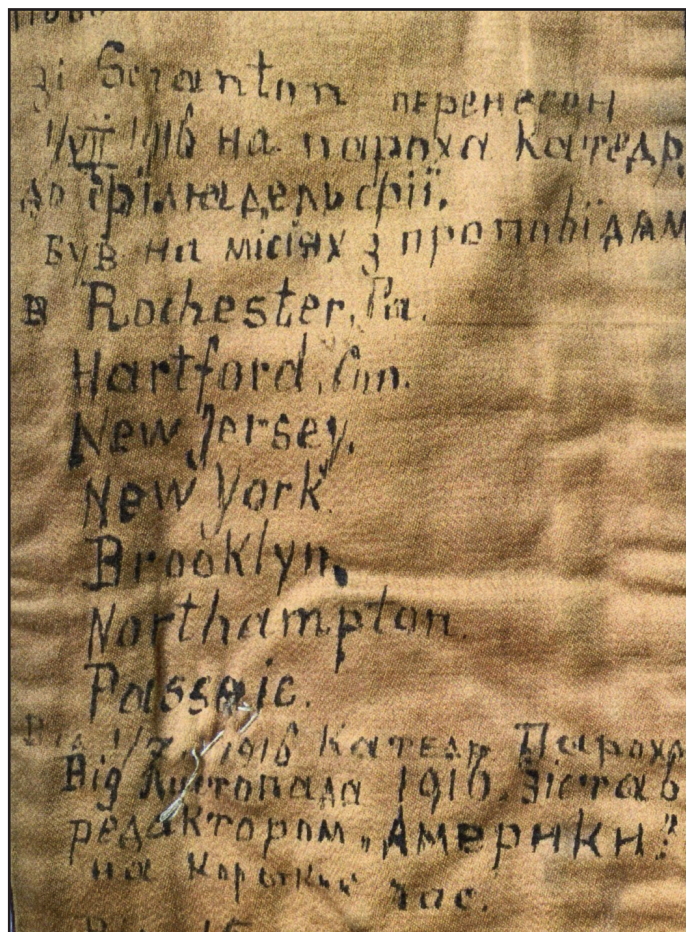 зі Scranton перенесен
1/VII 1916 на пароха Катедр
до Філядельфії.
Був на місіях з проповідям
в Rochester, Pa.
Hartford, Cnn.
New Jersey,
New York
Brooklyn,
Northampton.
Passaic.
Від 1916 Катедр Парохр
Від Листопада 1916, зістав
редактором „Америки"
на короткий час.